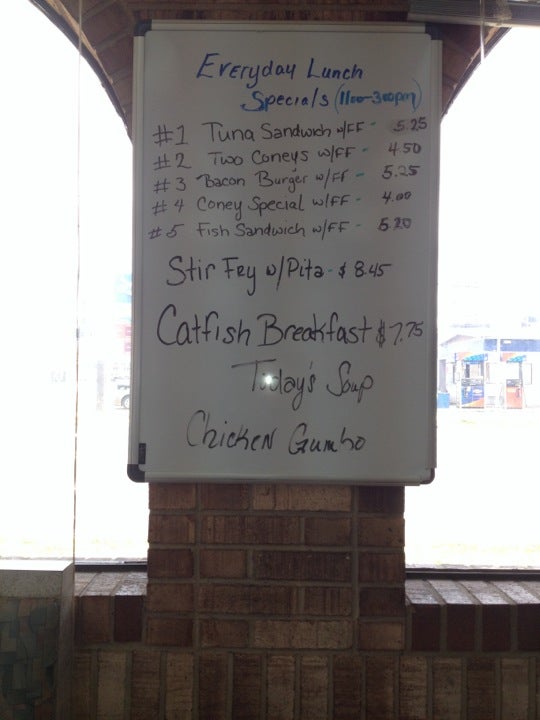 Everyday Lunch
Specials (11:00-3:00pm)
#1 Tuna Sandwich w/FF - 5.25
#2 Two Coneys w/FF - 4.50
#3 Bacon Burger w/FF - 5.25
#4 Coney Special w/FF - 4.00
#5 Fish Sandwich w/FF - 5.20
Stir Fry w/Pita - $8.45
Catfish Breakfast $7.75
Today's Soup
Chicken Gumbo